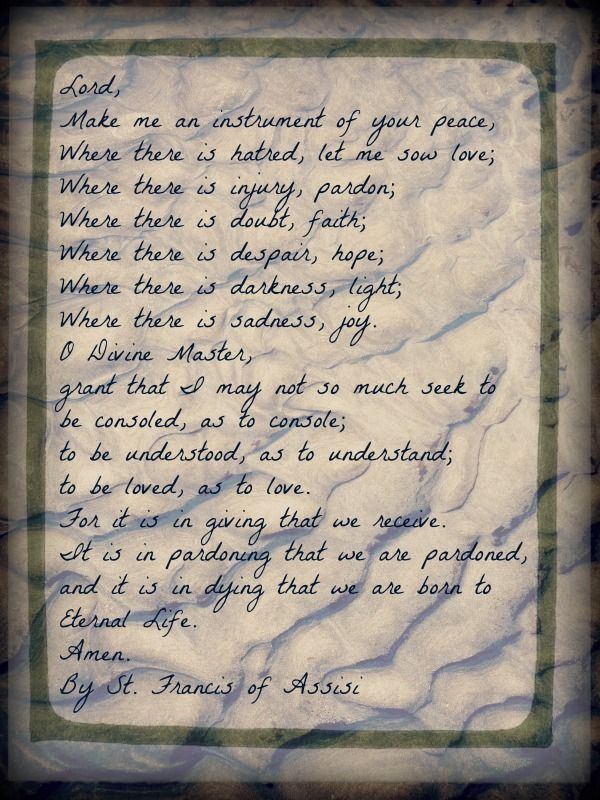 Lord,
Make me an instrument of your peace,
Where there is hatred, let me sow love;
Where there is injury, pardon;
Where there is doubt, faith;
Where there is despair, hope;
Where there is darkness, light;
Where there is sadness, joy.
O Divine Master,
grant that I may not so much seek to
be consoled, as to console;
to be understood, as to understand;
to be loved, as to love.
For it is in giving that we receive.
It is in pardoning that we are pardoned,
and it is in dying that we are born to
Eternal Life.
Amen.
By St. Francis of Assisi